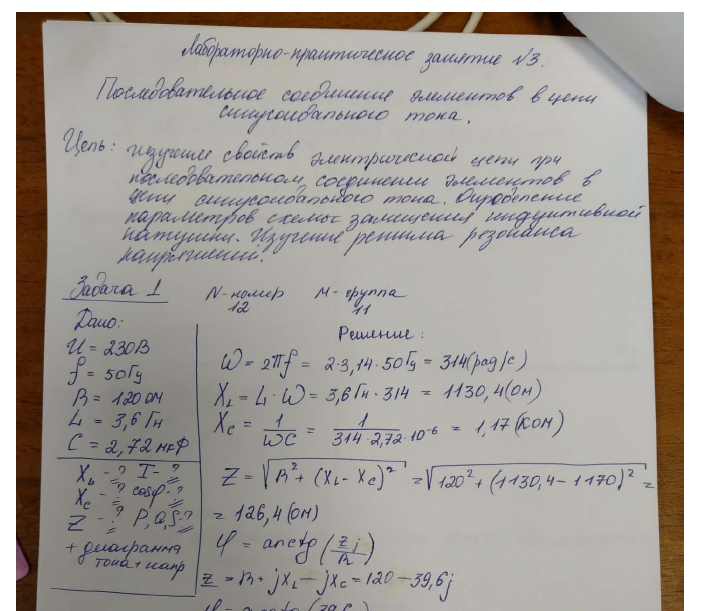 Лабораторно-практическое занятие №3.
Последовательное соединение элементов в цепи
синусоидального тока.
Цель: изучение свойств электрической цепи при
последовательном соединении элементов в
цепи синусоидального тока. Определение
параметров схемы замещения индуктивной
катушки. Изучение режима резонанса
напряжений.
Задача 1 N-номер M-группа
12 11
Дано:
U = 230В
f = 50Гц
R = 120 ОМ
L = 3,6 Гн
C = 2,72 мкФ
X_L - ? I - ?
X_C - ? cosφ - ?
Z - ? P, Q, S - ?
+ диаграмма
тока + напр
Решение:
ω = 2πf = 2·3,14·50Гц = 314(рад/с)
X_L = L·ω = 3,6 Гн·314 = 1130,4(ОМ)
X_C = 1/ωC = 1/314·2,72·10^-6 = 1,17(КОМ)
Z = √R² + (X_L - X_C)² = √120² + (1130,4 - 1170)² =
= 126,4(ОМ)
φ = arctg (Zj/R)
Z = R + jX_L - jX_C = 120 - 39,6j
φ = arctg (39,6